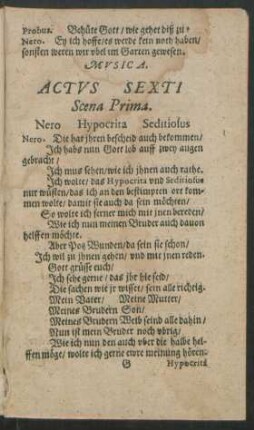 Probus. Behüte Gott / wie gehet diß zu?
Nero. Ey ich hoffe / es werde kein noth haben /
sonsten weren wir vbel im Garten gewesen.
MVSICA.
ACTVS SEXTI
Scena Prima.
Nero Hypocrita Seditiosus
Nero. Die hat jhren bescheid auch bekommen /
Ich habs nun Gott lob auff zwey augen
gebracht /
Ich mus sehen / wie ich jhnen auch rathe.
Ich wolte / das Hypocrita vnd Seditiosus
nur wüsten / das ich an den bestimpten ort kom-
men wolte / damit sie auch da sein möchten /
So wolte ich ferner mich mit jnen bereden /
Wie ich nun meinen Bruder auch dauon
helffen möchte.
Aber Potz Wunden / da sein sie schon /
Ich wil zu jhnen gehen / vnd mit jnen reden.
Gott grüsse euch /
Ich sehe gerne / das jhr hie seid /
Die sachen wie jr wisset / sein alle richtig.
Mein Vater / Meine Mutter /
Meines Brudern Son /
Meines Brudern Weib seind alle dahin /
Nun ist mein Bruder noch vbrig /
Wie ich nun den auch vber die halbe hel-
ffen möge / wolte ich gerne ewre meinung hören.
G Hypocrita